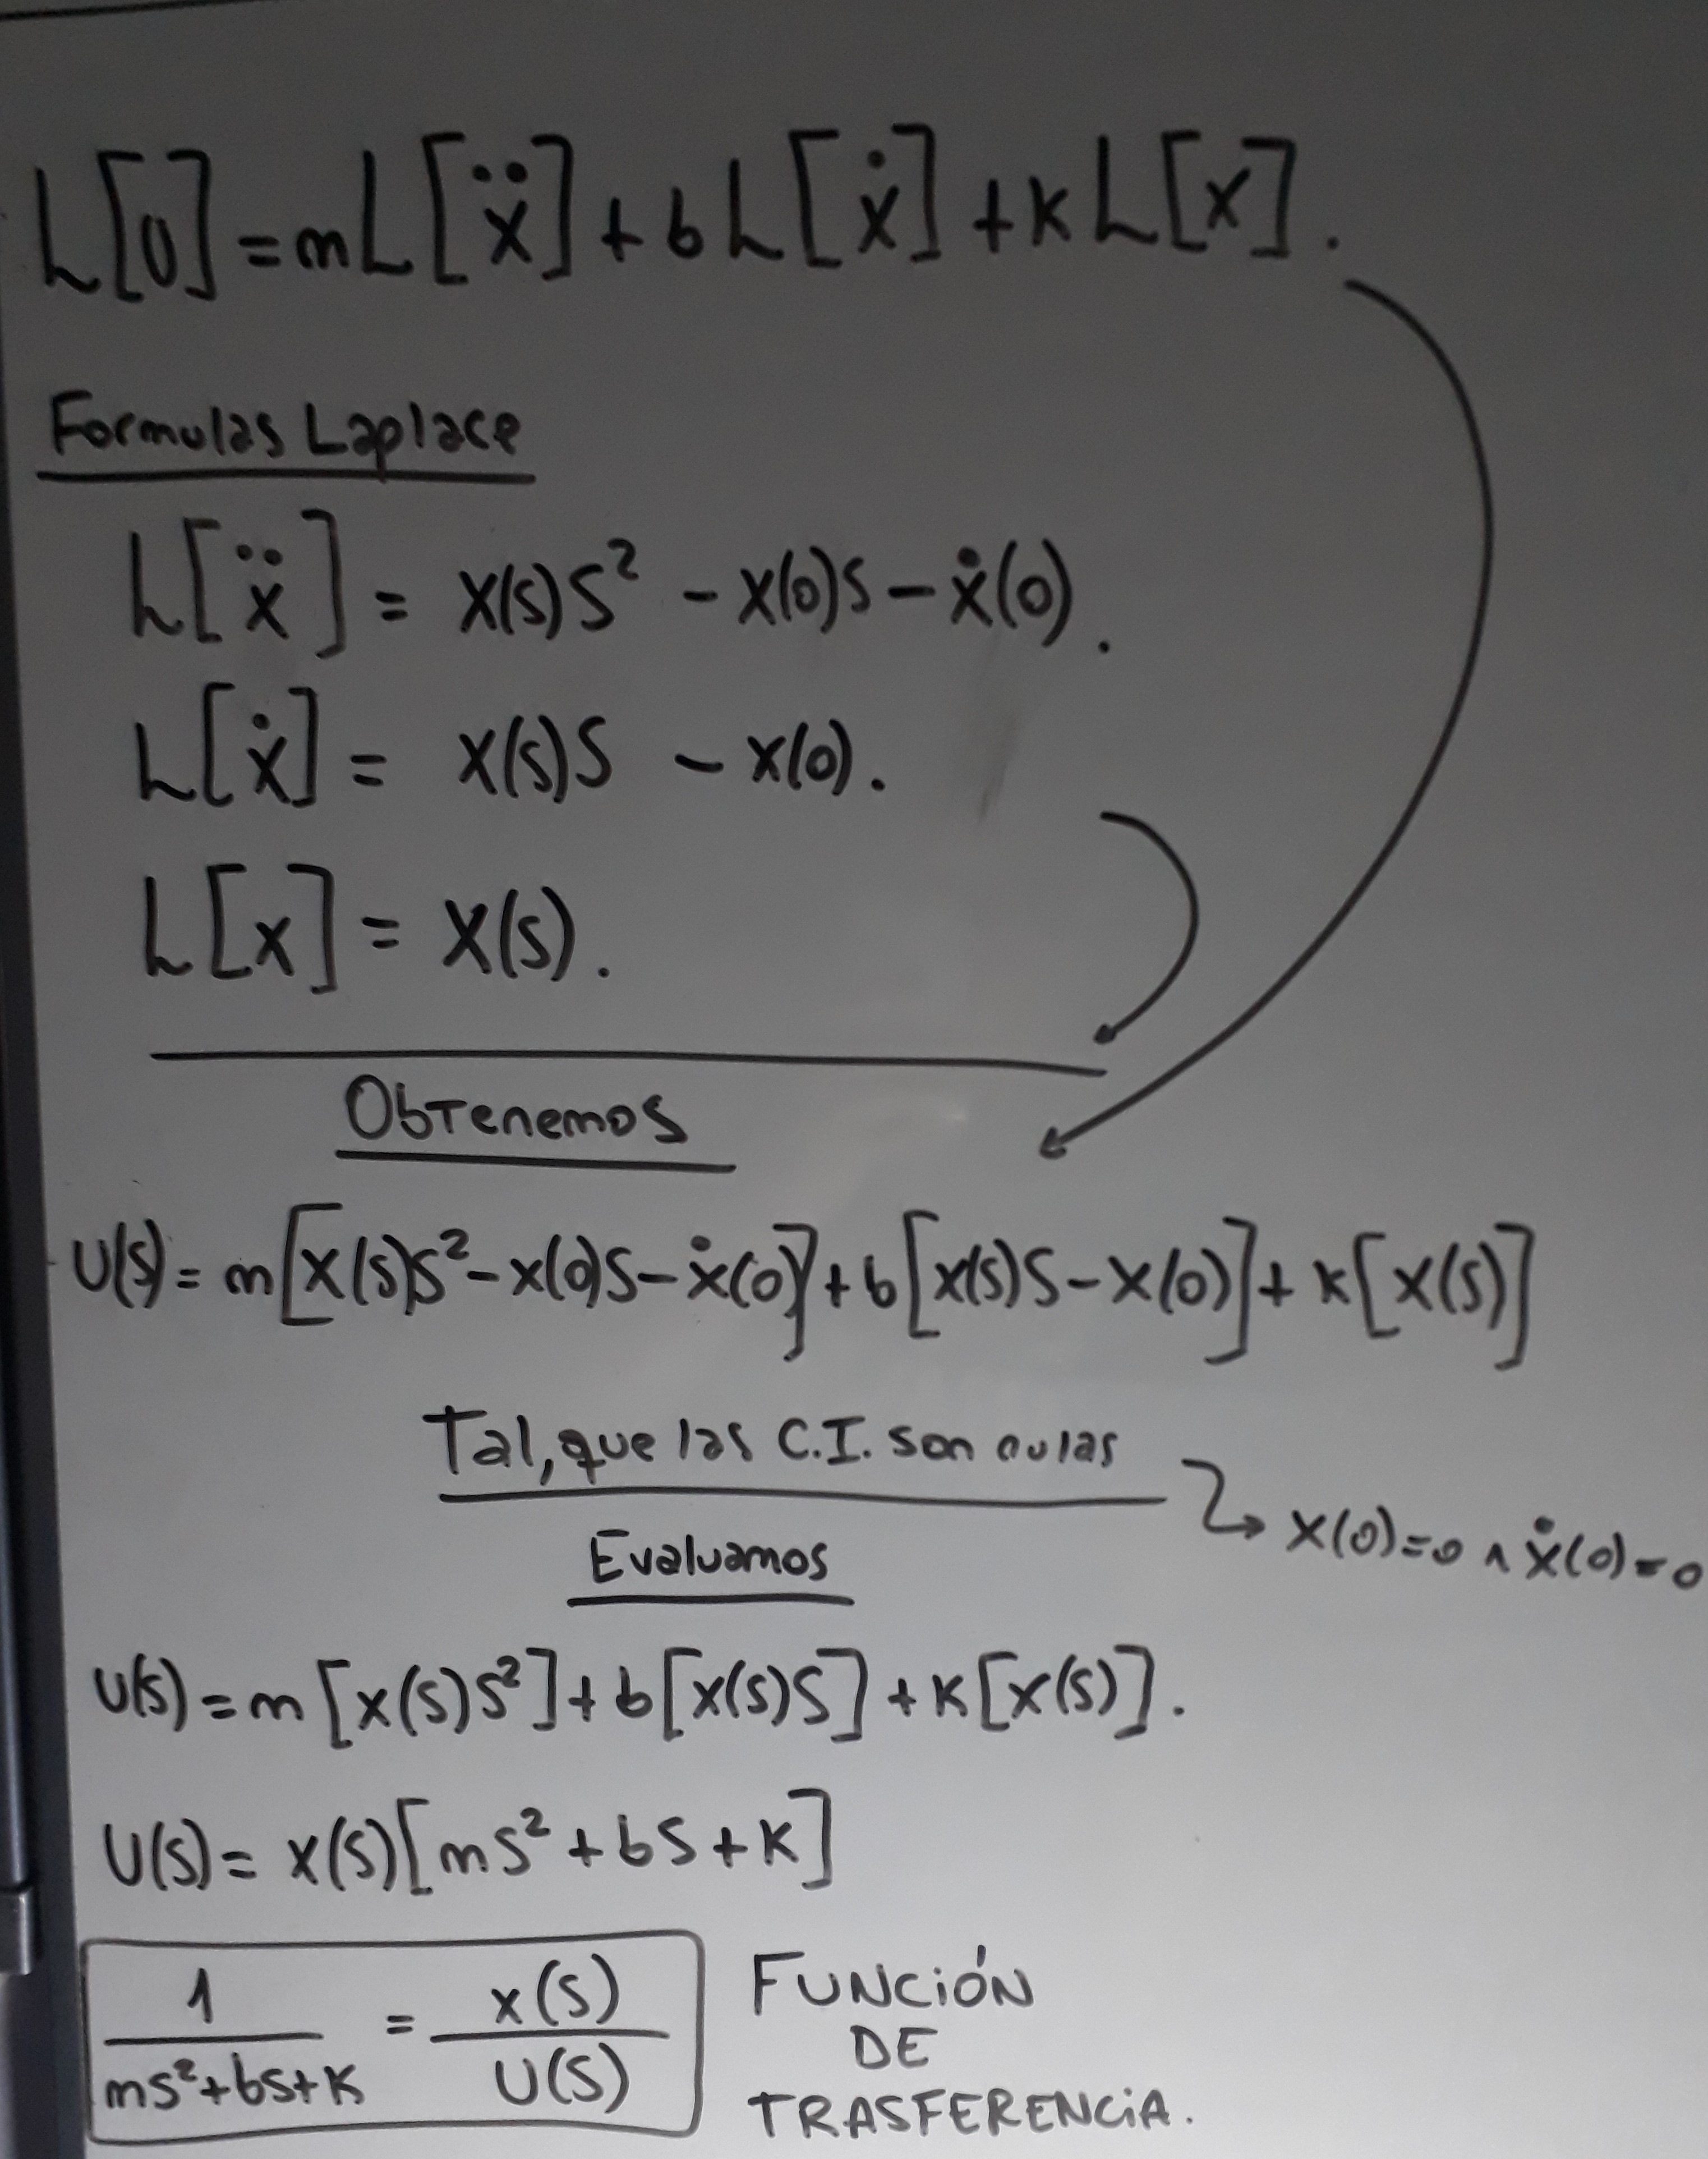 L[U] = mL[ẍ] + bL[ẋ] + kL[x].
Formulas Laplace
L[ẍ] = X(s)S² - X(0)S - ẋ(0).
L[ẋ] = X(s)S - X(0).
L[x] = X(s).
Obtenemos
U(s) = m[X(s)S² - X(0)S - ẋ(0)] + b[X(s)S - X(0)] + k[X(s)]
Tal, que las C.I. son nulas
X(0)=0 ∧ ẋ(0)=0
Evaluamos
U(s) = m[X(s)S²] + b[X(s)S] + k[X(s)].
U(s) = X(s)[mS² + bS + k]
1/(mS²+bS+k) = X(s)/U(s)
FUNCIÓN
DE
TRASFERENCIA.